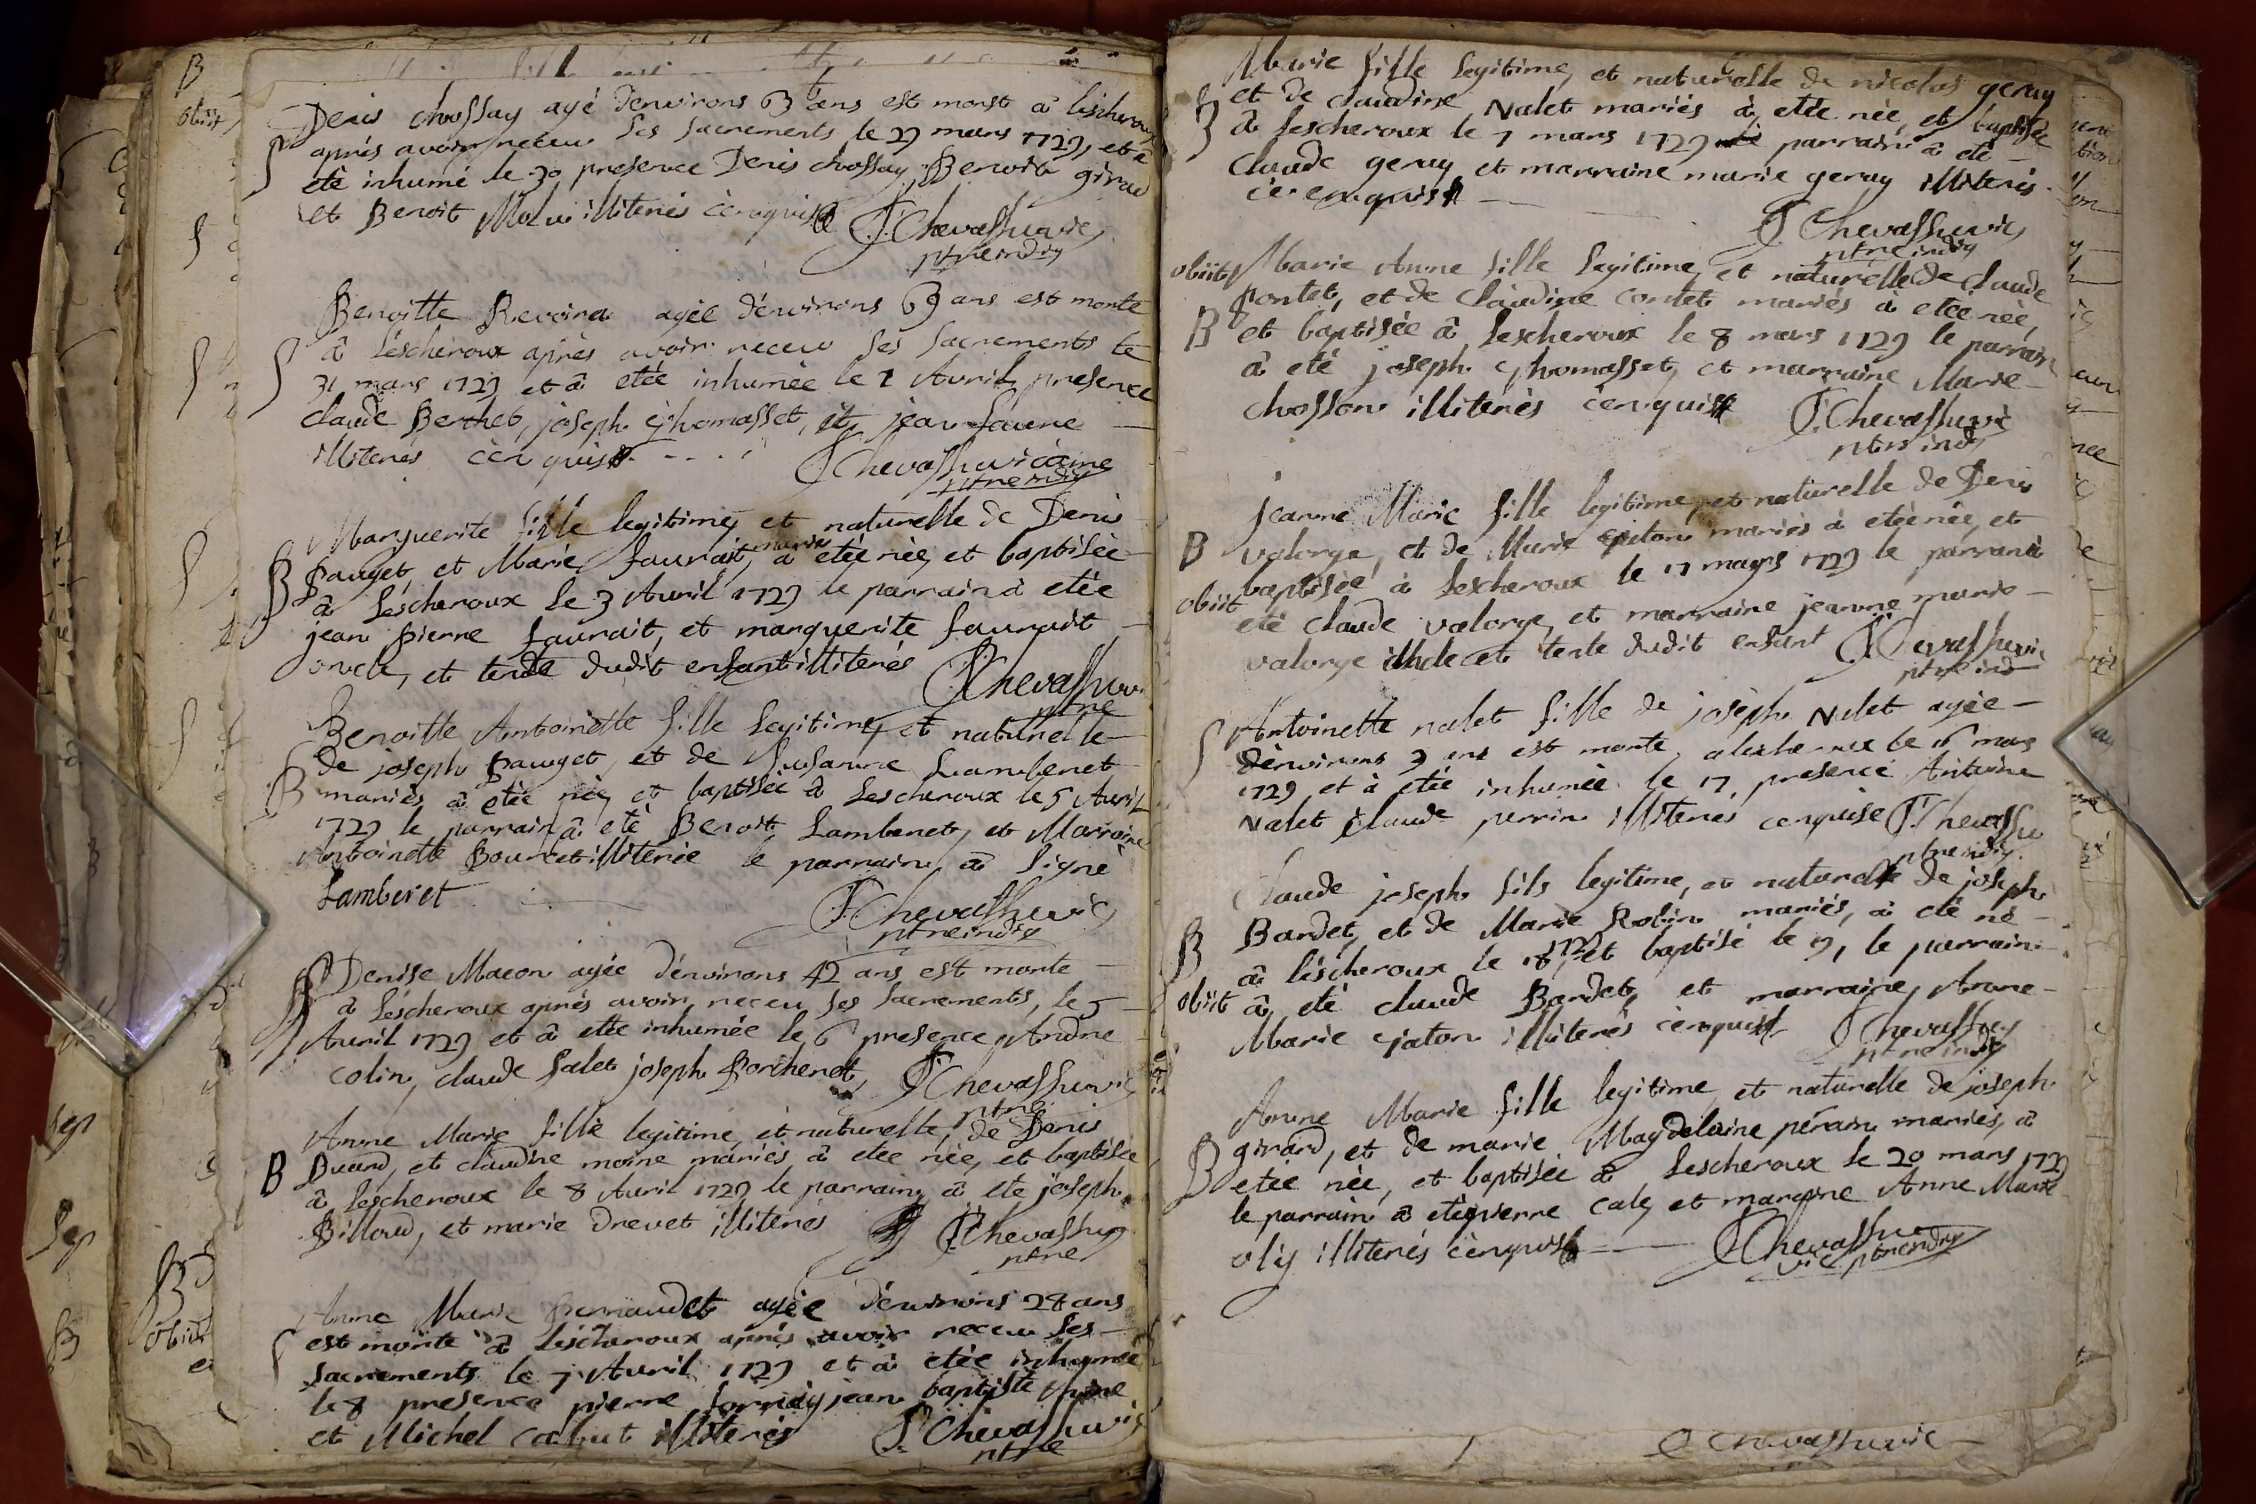 B
obiit
Denis chossay agé d'environs 63 ans est mort â lescheroux
aprés avoir receu ses sacrements le 29 mars 1729, et â
eté inhumé le 30 presence Denis chossay, Benoit girad
et Benoit illiterés cenquis F: Chevassu vic
ptre indig
Benoitte Revoira agée d'environs 69 ans est morte
S â Lescheroux aprés avoir receu ses sacrements le
31 mars 1729 et â etée inhumée le 1 Avril presence
claude Berthet, joseph thomasset, et jean faune
illiterés cenquis F: Chevassu vicaire
ptre indig
Marguerite fille legitime, et naturelle de Denis
B pauget, et Marie faurait, mariés â etée née, et baptisée
â Lescheroux le 3 Avril 1729 le parrain â etée
jean pierre faurait, et marguerite faurait
oncle, et tente dudit enfant illiterés F: Chevassu vi
ptre
Benoitte Antoinette fille legitime, et naturelle
de joseph pauget, et de Susanne Lamberet
B mariés, â etée née, et baptisée â Lescheroux le 5 Avril
1729 le parrain â eté Benoit Lamberet, et Marraine
Antoinette Bourcet illiterée le parrain â signé
Lamberet F: Chevassu vic
ptre indig
Denise Macon agée d'environs 42 ans est morte
S â Lescheroux aprés avoir receu ses sacrements, le 5
Avril 1729 et â etée inhumée le 6 presence Andre
colin, claude salet joseph Borchenet, F: Chevassu vic
ptre
Anne Marie fille legitime, et naturelle, de Denis
B Buard, et claudine moine mariés â etée née, et baptisée
â Lescheroux le 8 Avril 1729 le parrain â ete joseph
Billoud, et marie drevet illiterés F: Chevassu vic
ptre
Anne Marie perraudet agée d'environs 28 ans
S est morte â Lescheroux aprés avoir receu ses
sacrements le 7 Avril 1729 et â etée inhumée
le 8 presence pierre jean baptiste
et Michel cabut illiterés F: Chevassu vic
ptre
Marie fille legitime, et naturelle de nicolas geray
B et de claudine Nalet mariés â etée née, et baptisée
â Lescheroux le 7 mars 1729 parrain â eté
claude geray et marraine marie geray illiterés
cenquis
F: Chevassu vic
ptre indig
obiit Marie Anne fille legitime, et naturelle de claude
pontet, et de claudine contet mariés â etée née,
B et baptisée â Lescheroux le 8 mars 1729 le parrain
â eté joseph thomasset, et marraine Marie
chosson illiterés cenquis F: Chevassu vic
ptre indi
jeanne Marie fille legitime, et naturelle de Denis
B valorge, et de Marie mariés â etée née, et
obiit baptisée â Lescheroux le 11 mars 1729 le parrain â
eté claude valorge, et marraine jeanne marie
valorge et tente dudit enfant F: Chevassu vic
ptre ind
S Antoinette nalet fille de joseph Nalet agée
d'environs 3 ans est morte, a lescheroux le 16 mars
1729 et â etée inhumée le 17, presence Antoine
Nalet claude perrin illiterés cenquise F: Chevassu
ptre indig
claude joseph fils legitime, et naturel de joseph
B Bardet, et de Marie Robin mariés, â eté né
â lescheroux le 18 1729 et baptisé le 19, le parrain
obiit â, eté claude Bardet, et marraine, Anne
Marie jaton illiterés cenquist F: Chevassu vic
ptre indig
Anne Marie fille legitime, et naturelle de joseph
B girard, et de marie Magdelaine perrin mariés, â
etée née, et baptisée â Lescheroux le 20 mars 1729
le parrain â eté pierre caly et marraine Anne Marie
oly illiterés cenquis F: Chevassu
vic ptre indig
F: Chevassu vic